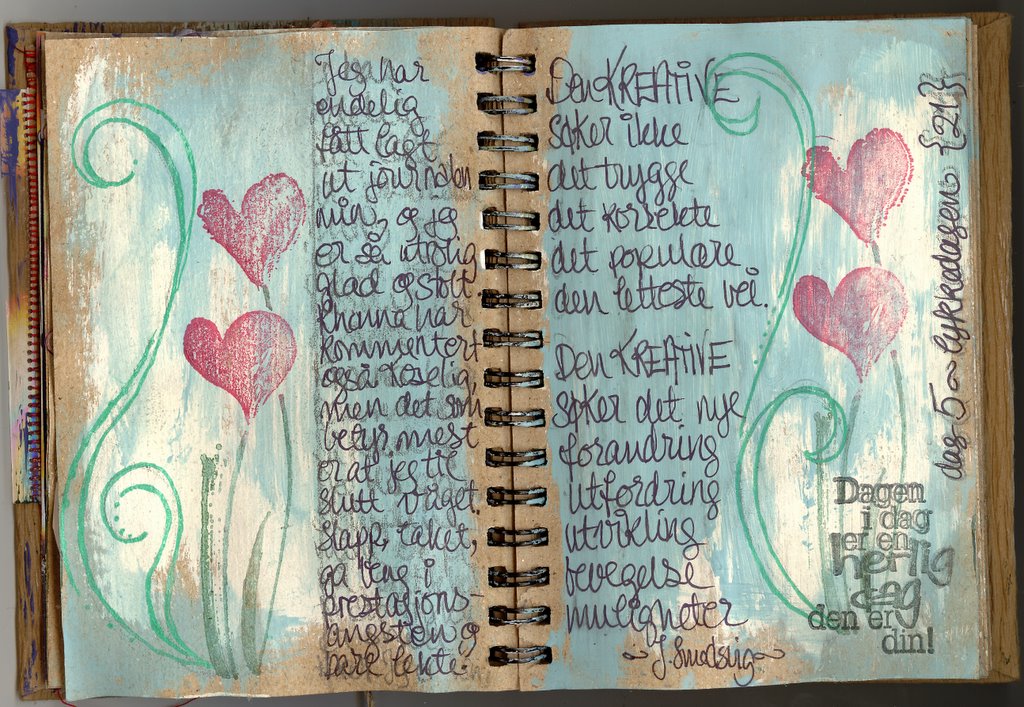 Jeg har
endelig
fått lagt
ut journalen
min, og jeg
er så utrolig
glad og stolt.
Rhonna har
kommentert
også koselig,
men det som
betyr mest
er at jeg til
slutt våget.
slapp taket,
ga beng i
prestasjons-
angsten og
bare lekte.
Den KREATIVE
søker ikke
det trygge
det korrekte
det populære
den letteste vei.
Den KREATIVE
søker det nye
forandring
utfordring
utvikling
bevegelse
muligheter
dag 5 ~ lykkedagene {21}
Dagen
i dag
er en
herlig
dag
den er
din!